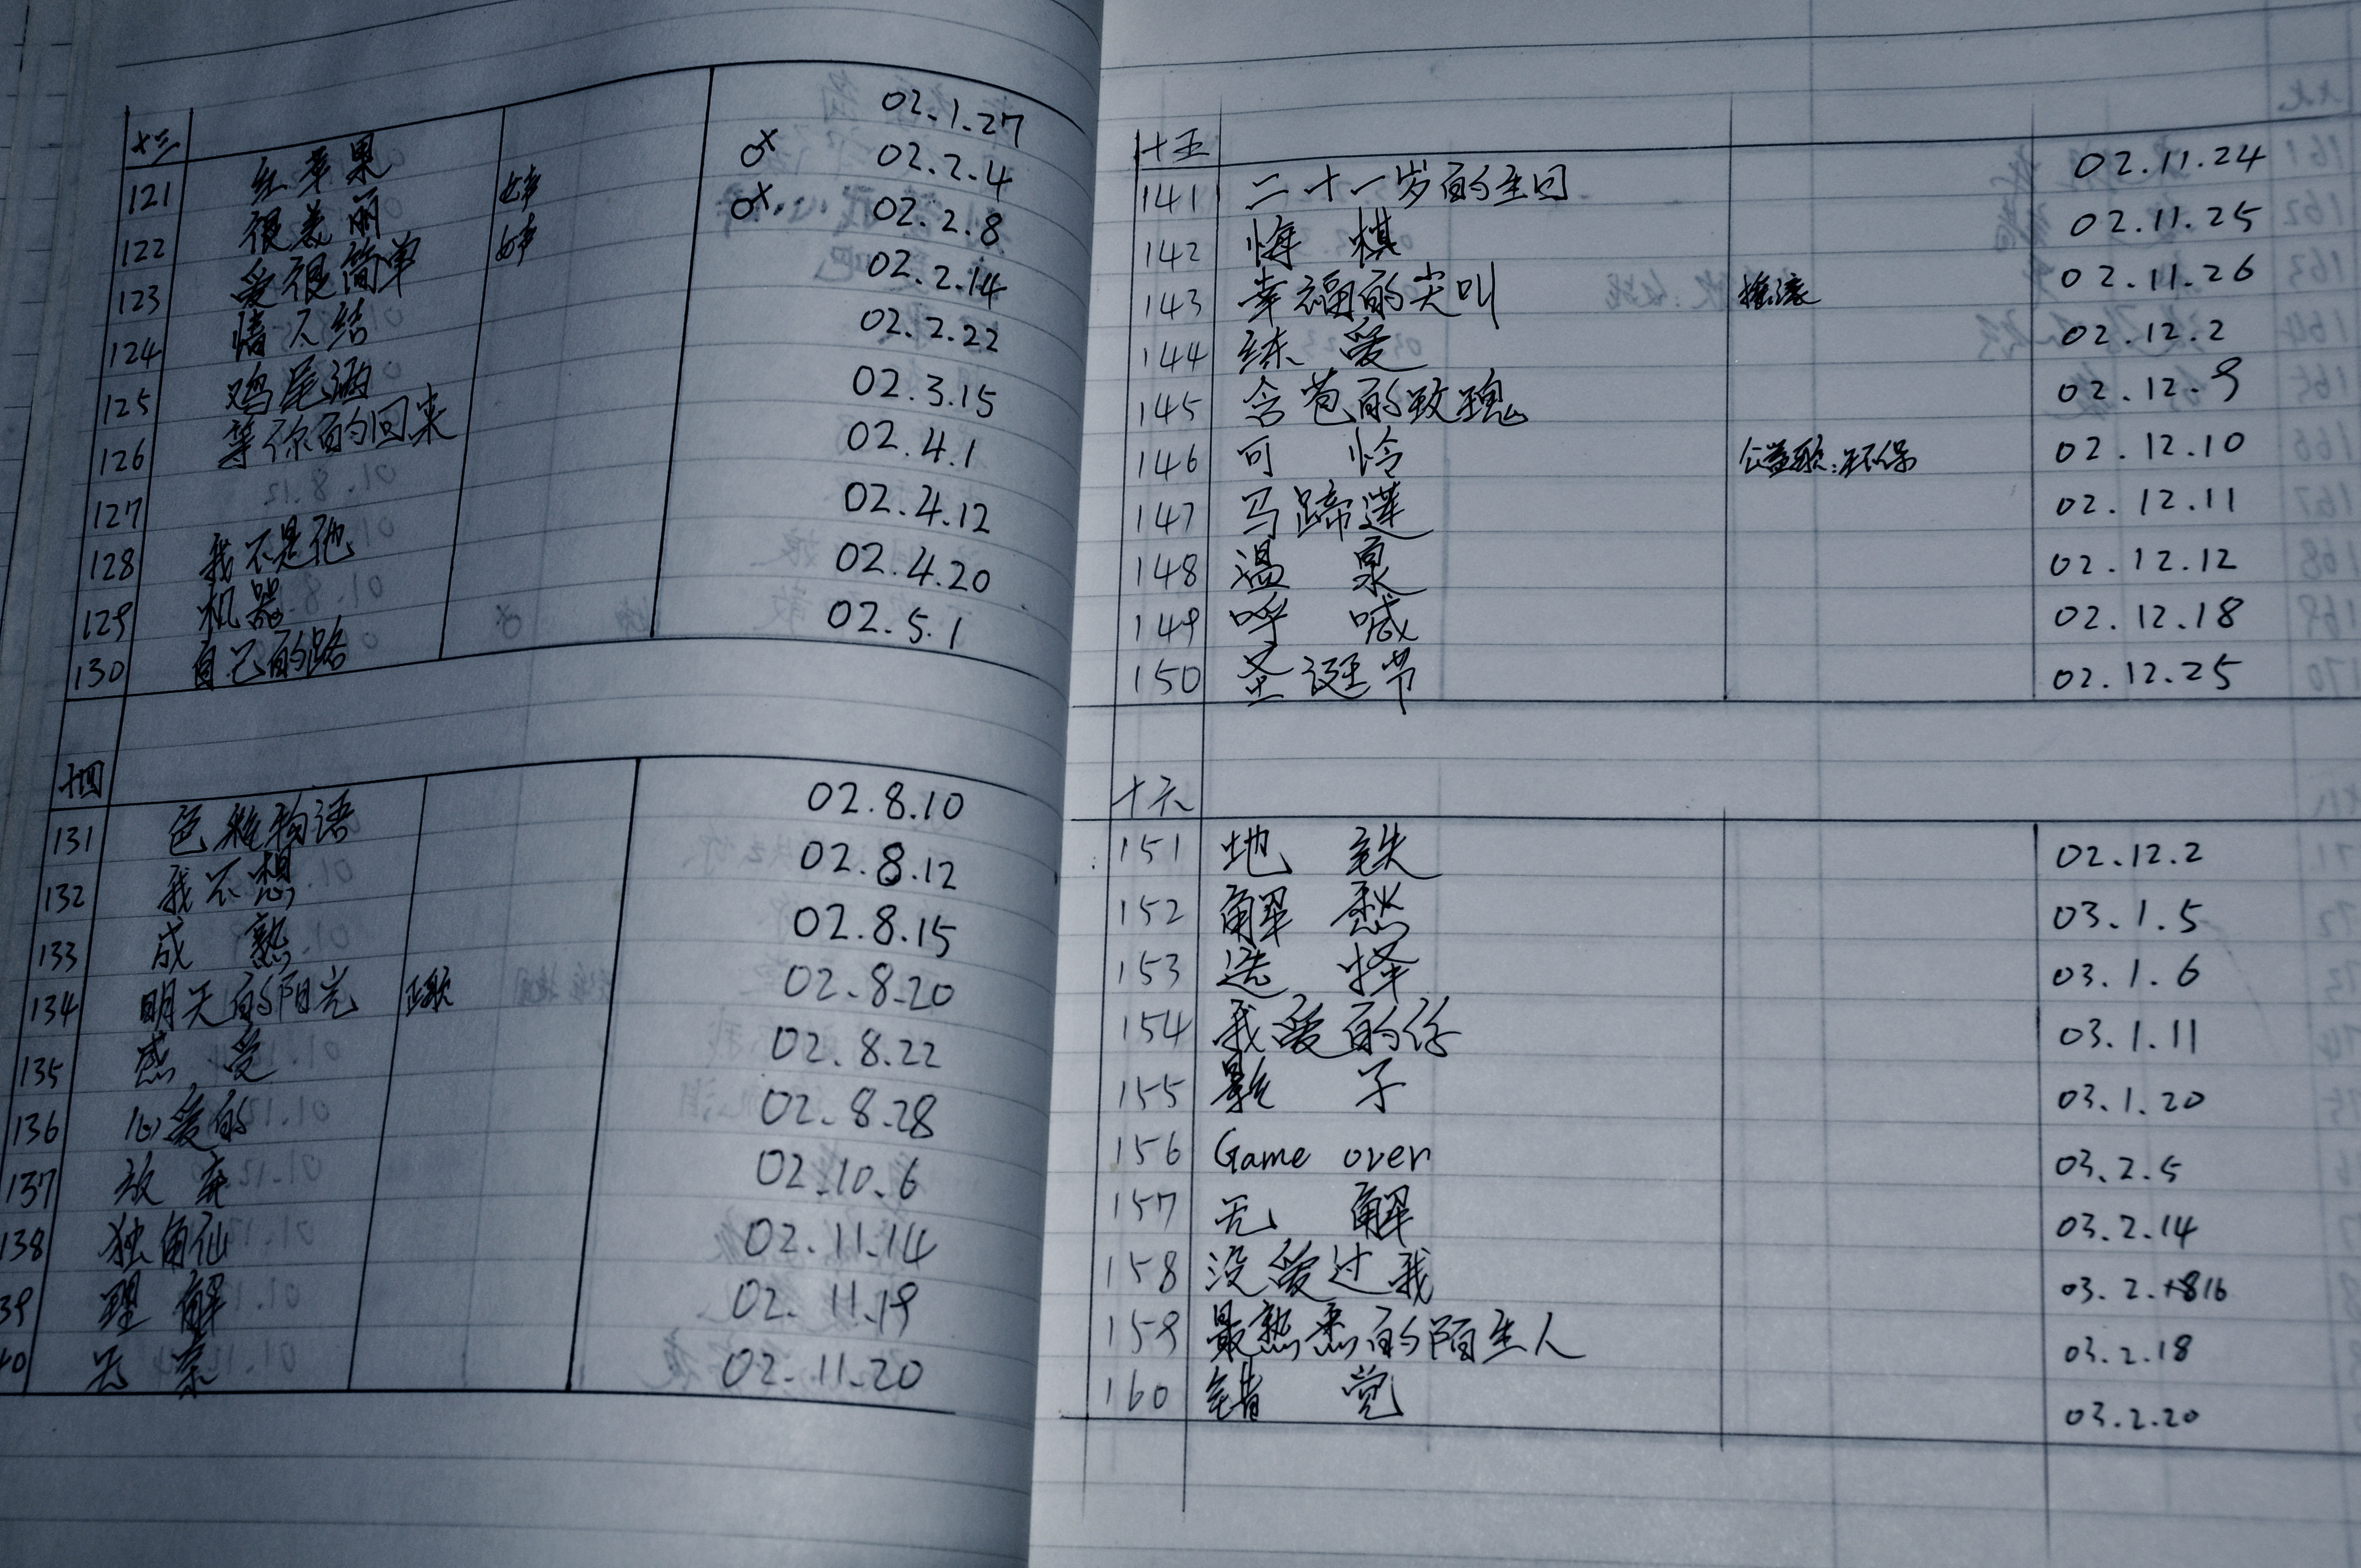 十三
121 红苹果 02.1.27
122 很美丽 女声 02.2.4
123 爱很简单 女声 02.2.8
124 情人结 02.2.14
125 鸡尾酒 02.2.22
126 等你的回来 02.3.15
127 02.4.1
128 我不是他 02.4.12
129 机器 02.4.20
130 自己的路 02.5.1
十四
131 色彩物语 02.8.10
132 我不想 02.8.12
133 成熟 02.8.15
134 明天的阳光 正歌 02.8.20
135 感受 02.8.22
136 心爱的 02.8.28
137 放弃 02.10.6
138 独角仙 02.11.14
39 理解 02.11.19
40 02.11.20
十五
141 二十一岁的生日 02.11.24
142 悔棋 02.11.25
143 幸福的尖叫 摇滚 02.11.26
144 练爱 02.12.2
145 含苞的玫瑰 02.12.9
146 可怜 公益歌:环保 02.12.10
147 马蹄莲 02.12.11
148 温泉 02.12.12
149 呼喊 02.12.18
150 圣诞节 02.12.25
十六
151 地铁 02.12.2
152 解愁 03.1.5
153 选择 03.1.6
154 我爱的你 03.1.11
155 影子 03.1.20
156 Game over 03.2.5
157 无解 03.2.14
158 没爱过我 03.2.16
159 最熟悉的陌生人 03.2.18
160 错觉 03.2.20